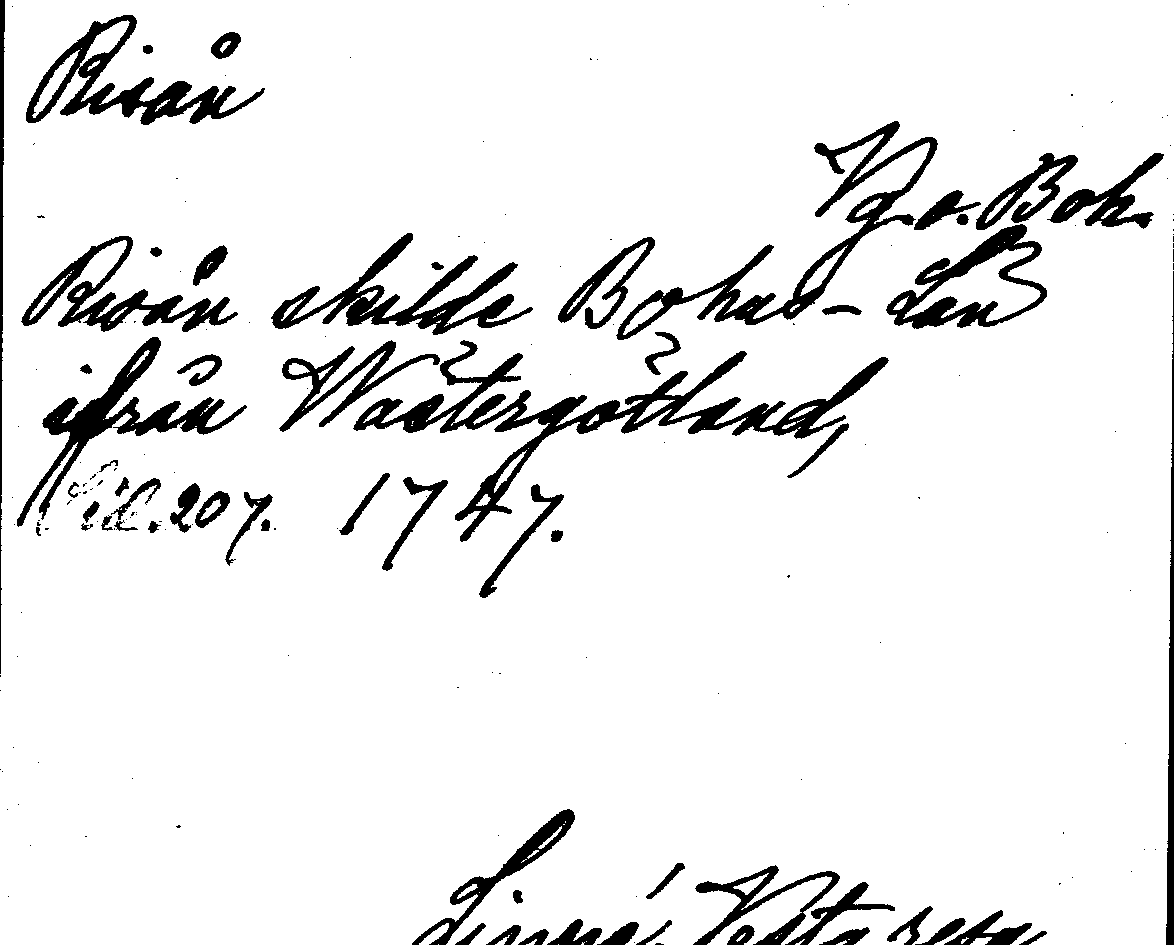 Risån
Vg. o. Boh.
Risån skilde Bohus-Län
ifrån Wästergötland,
Sid. 207. 1747.
Linné, Västg. resa